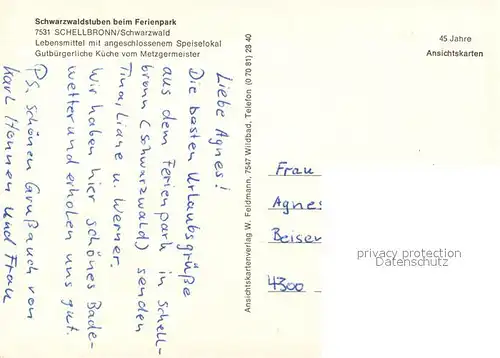 Schwarzwaldstuben beim Ferienpark
7531 SCHELLBRONN/Schwarzwald
Lebensmittel mit angeschlossenem Speiselokal
Gutbürgerliche Küche vom Metzgermeister
45 Jahre
Ansichtskarten
Liebe Agnes!
Die besten Urlaubsgrüße
aus dem Ferienpark in Schell-
bronn (Schwarzwald) senden
Tina, Liane u. Werner.
Wir haben hier schönes Bade-
wetter und erholen uns gut.
PS. schönen Gruß auch von
Karl Hennen und Frau
Ansichtskartenverlag W. Feldmann, 7547 Wildbad, Telefon (0 70 81) 28 40
Frau
Agnes
Beisen
4300
privacy protection
Datenschutz